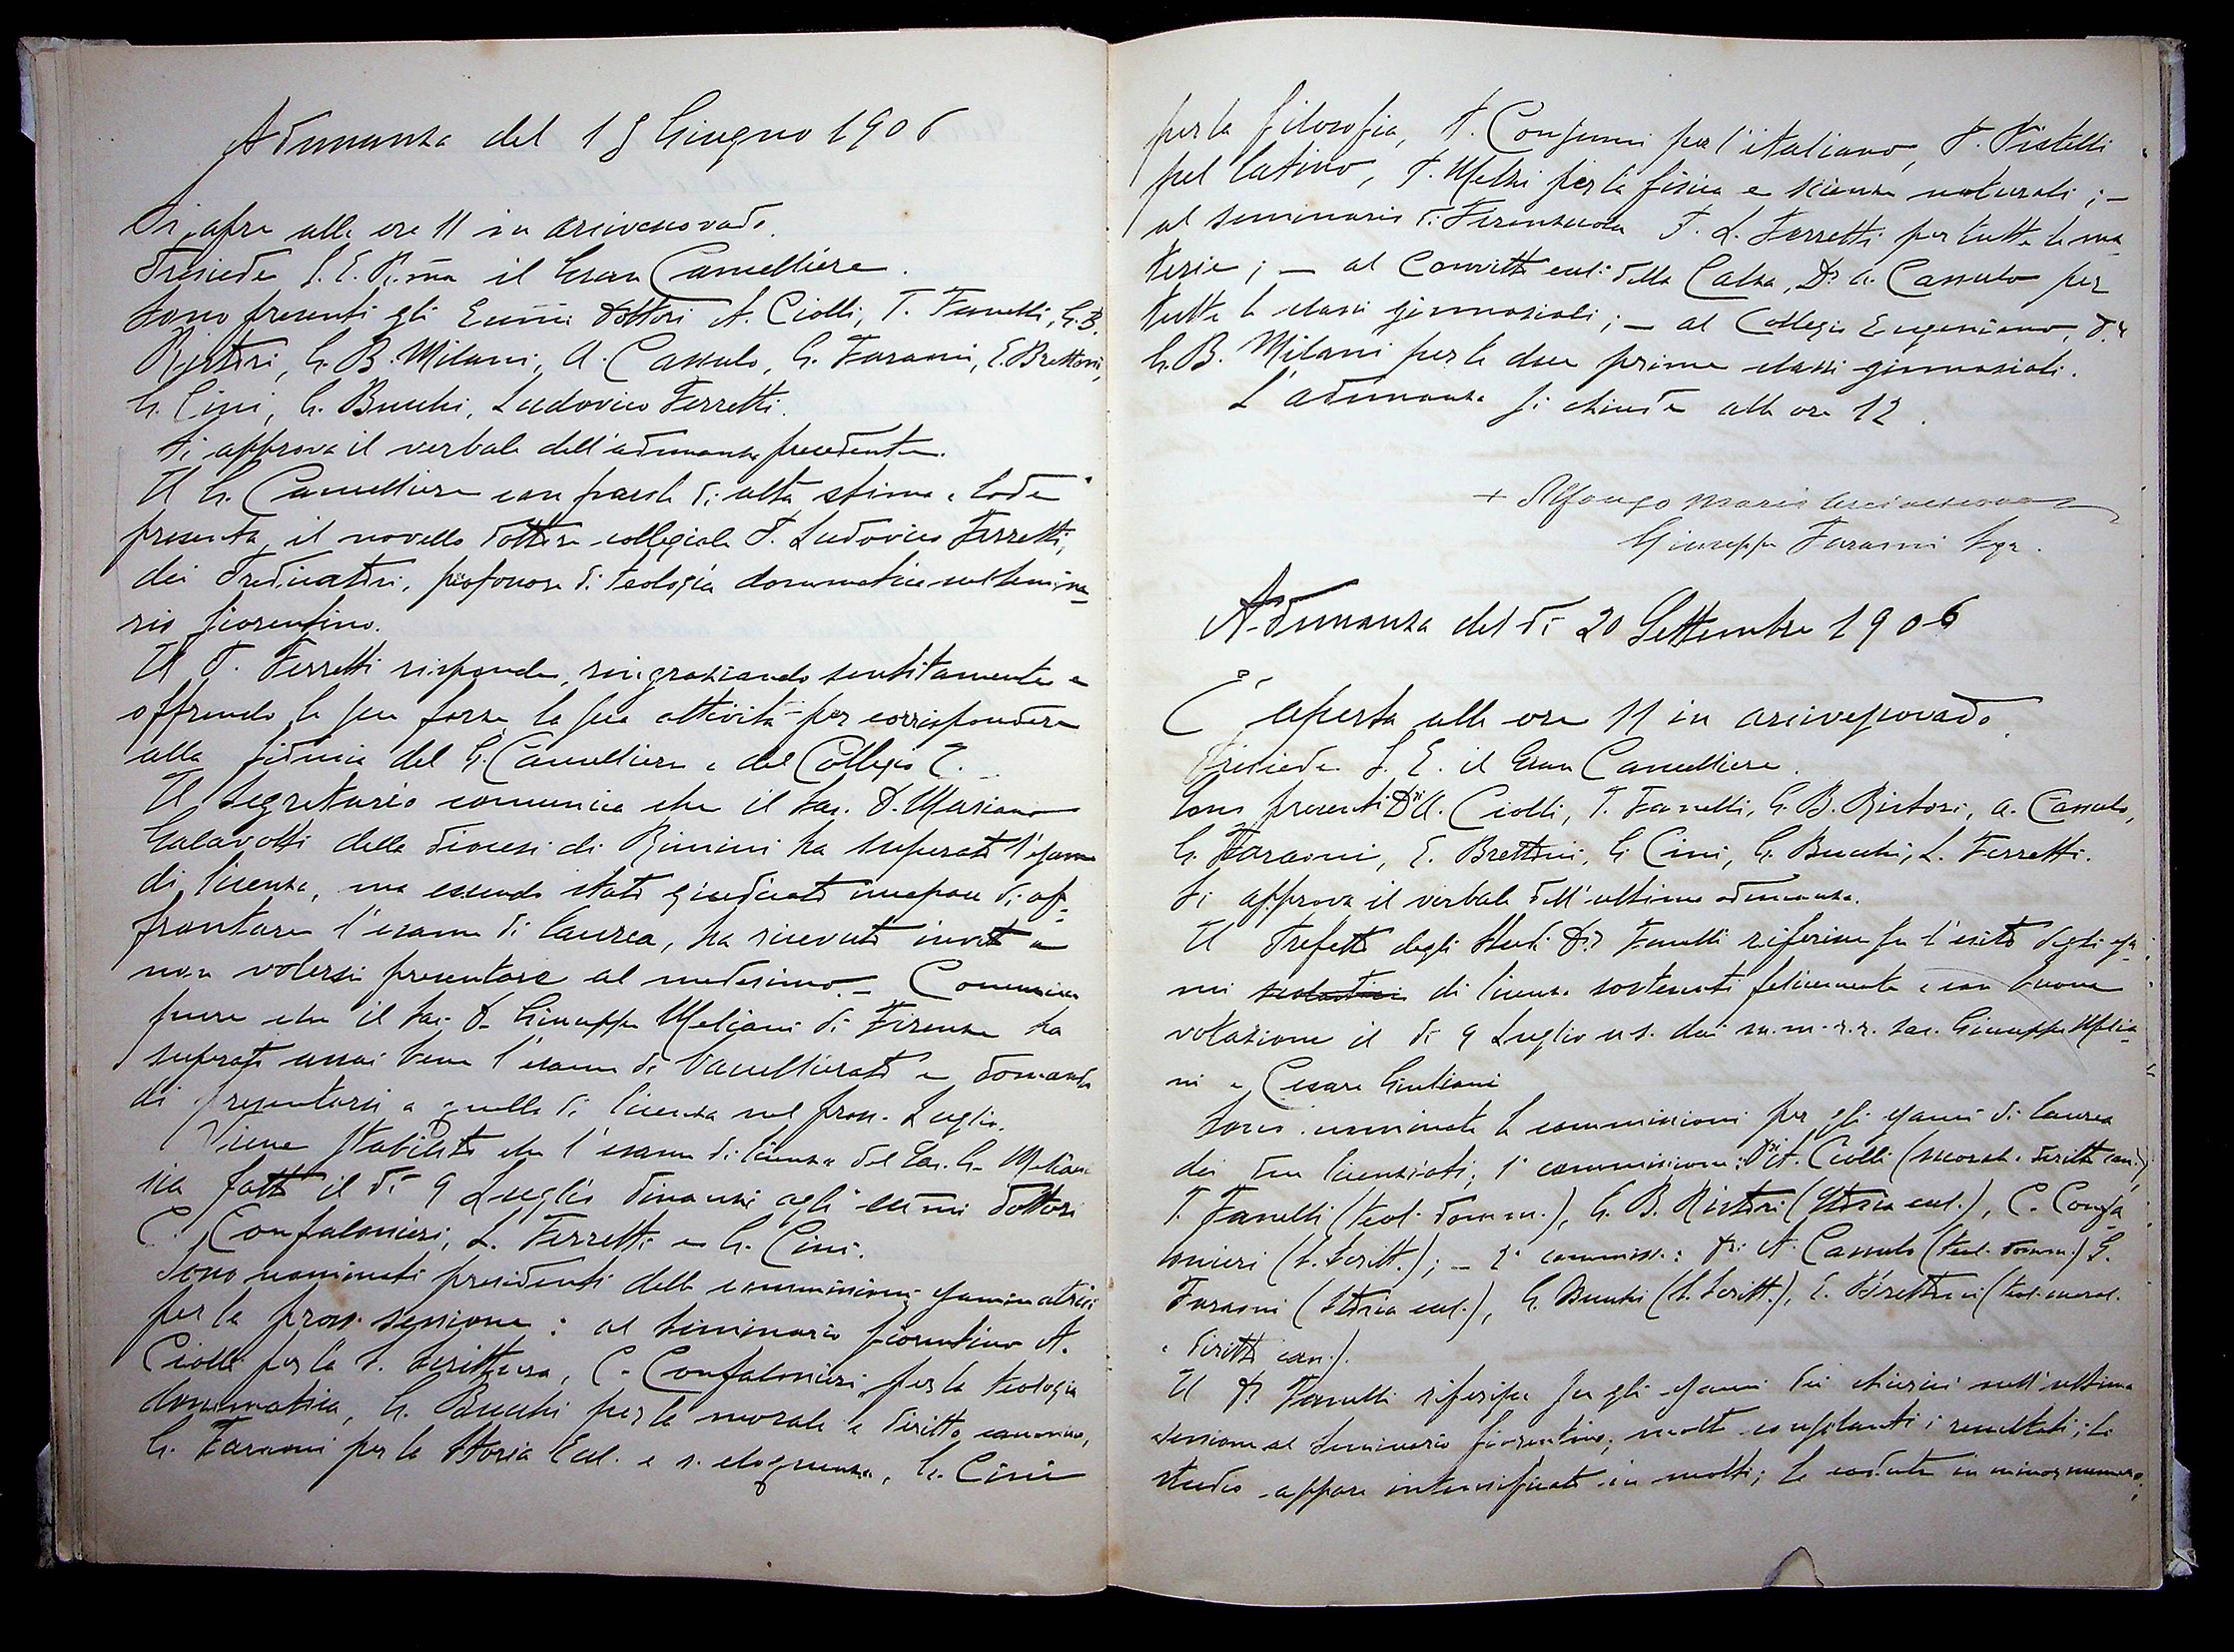 Adunanza del 15 Giugno 1906
Si apre alle ore 11 in arcivescovado.
Presiede S. E. R.ma il Gran Cancelliere.
Sono presenti gli Ecc̄mi Dottori A. Ciolli, T. Fanelli, G. B.
Ristori, G. B. Milani, A. Cassulo, G. Faraoni, E. Brettoni,
G. Cini, G. Bucchi, Ludovico Ferretti.
Si approva il verbale dell'adunanza precedente.
Il G. Cancelliere con parole di alta stima e lode
presenta il novello dottore collegiale P. Ludovico Ferretti,
dei Predicatori, professore di teologia dommatica nel semina-
rio fiorentino.
Il P. Ferretti risponde, ringraziando sentitamente e
offrendo le sue forze la sua attività per corrispondere
alla fiducia del G. Cancelliere e del Collegio T.
Il Segretario comunica che il sac. D. Mariano
Galavotti della diocesi di Rimini ha superato l'esame
di licenza, ma essendo stato giudicato incapace di af-
frontare l'esame di laurea, ha ricevuto invito a
non volersi presentare al medesimo. - Comunica
pure che il sac. D. Giuseppe Meliani di Firenze ha
superato assai bene l'esame di baccellierato e domanda
di presentarsi a quello di licenza nel pross. Luglio.
Viene stabilito che l'esame di licenza del Sac. G. Meliani
sia fatto il dì 9 Luglio dinanzi agli ecc̄mi dottori
C. Confalonieri, L. Ferretti e G. Cini.
Sono nominati presidenti delle commissioni esaminatrici
per la pross. sessione: al seminario fiorentino A.
Ciolli per la S. Scrittura, C. Confalonieri per la teologia
dommatica, G. Bucchi per la morale e diritto canonico,
G. Faraoni per la Storia Eccl. e s. eloquenza, G. Cini
per la filosofia, P. per l'italiano, P. Pistelli
pel latino, P. Melzi per la fisica e scienze naturali; -
al seminario di Firenzuola P. L. Ferretti per tutte le ma
terie; - al Convitto eccl. della Calza, Dr. A. Cassulo per
tutte le classi ginnasiali; - al Collegio Eugeniano, D.r
G. B. Milani per le due prime classi ginnasiali.
L'adunanza si chiude alle ore 12.
+ Alfonso Maria Arcivescovo
Giuseppe Faraoni Segr.
Adunanza del dì 20 Settembre 1906
È aperta alle ore 11 in arcivescovado.
Presiede S. E. il Gran Cancelliere.
Sono presenti Dri A. Ciolli, T. Fanelli, G. B. Ristori, A. Cassulo,
G. Faraoni, E. Brettoni, G. Cini, G. Bucchi, L. Ferretti.
Si approva il verbale dell'ultima adunanza.
Il Prefetto degli Studi Dr. Fanelli riferisce su l'esito degli esa-
mi scolastici di licenza sostenuti felicemente e con buona
votazione il dì 9 Luglio u s. dai m.m. r.r. sac. Giuseppe Melia-
ni e Cesare Giuliani
Sono nominate le commissioni per gli esami di laurea
dei due licenziati; 1ª commissione: Dri A. Ciolli (morale e diritto can.)
T. Fanelli (teol. domm.), G. B. Ristori (Storia eccl.), C. Confa-
lonieri (S. Scritt.); - 2ª commiss.: Dri A. Cassulo (teol. domm.) G.
Faraoni (Storia eccl.), G. Bucchi (S. Scritt.), E. Brettoni (teol. moral.
e diritto can.).
Il Dr. Fanelli riferisce su gli esami dei chierici nell'ultima
sessione al Seminario fiorentino; molto consolanti i resultati; lo
studio appare intensificato in molti; le cadute in minor numero;